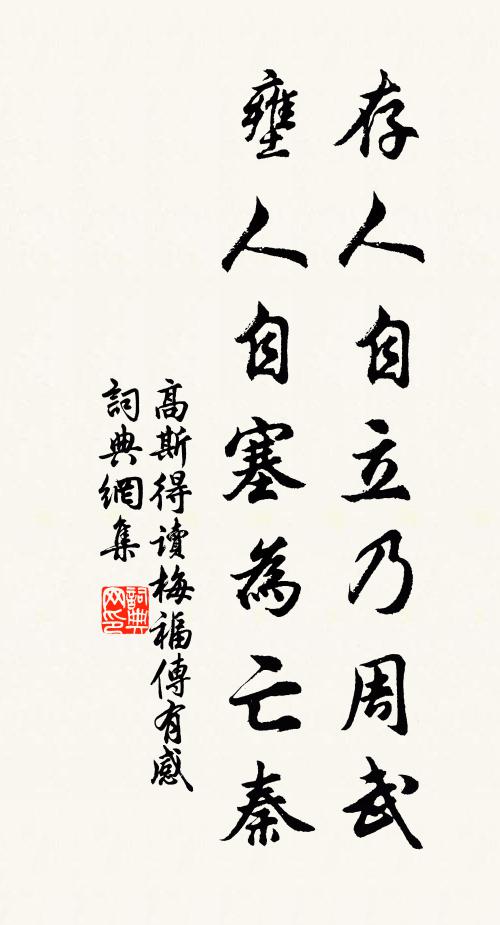 存人自立乃周武
壅人自塞為亡秦
高斯得讀梅福傳有感
詞典網集
詞典网印